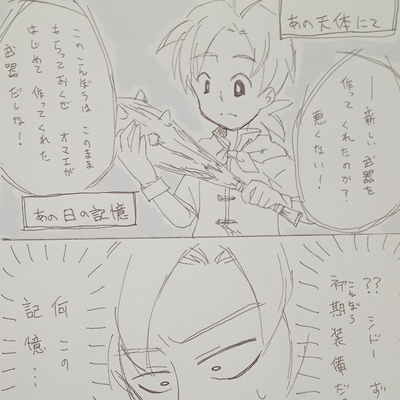 あの天体にて
──新しい武器を
作ってくれたのか?
悪くない!
このこんぼうは このまま
もらっておくぜ オマエが
はじめて 作ってくれた
武器だしな!
あの日の記憶
?? シドー
こんぼう
初期装備だ
何 この
記憶…